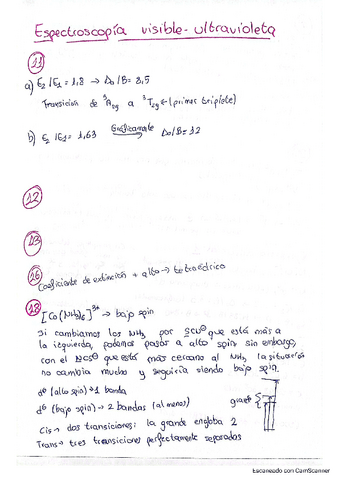 Espectroscopía visible-ultravioleta
11
a) E2/E1 = 1,8 → Δo/B = 8,5
Transición de ³A2g a ³T2g ← (primer triplete)
b) E2/E1 = 1,63 Gráficamente Δo/B = 12
12
13
16
Coeficiente de extinción + alto → tetraédrico
18
[Co(NH3)6]³⁺ → bajo spin
Si cambiamos los NH3 por SCN⁻ que está más a
la izquierda, podemos pasar a alto spin sin embargo,
con el NCS⁻ que está más cercano al NH3 la situación
no cambia mucho y seguiría siendo bajo spin.
d⁶ (alto spin) → 1 banda
d⁶ (bajo spin) → 2 bandas (al menos)
Cis → dos transiciones: la grande engloba 2
Trans → tres transiciones perfectamente separadas
grande
Escaneado con CamScanner